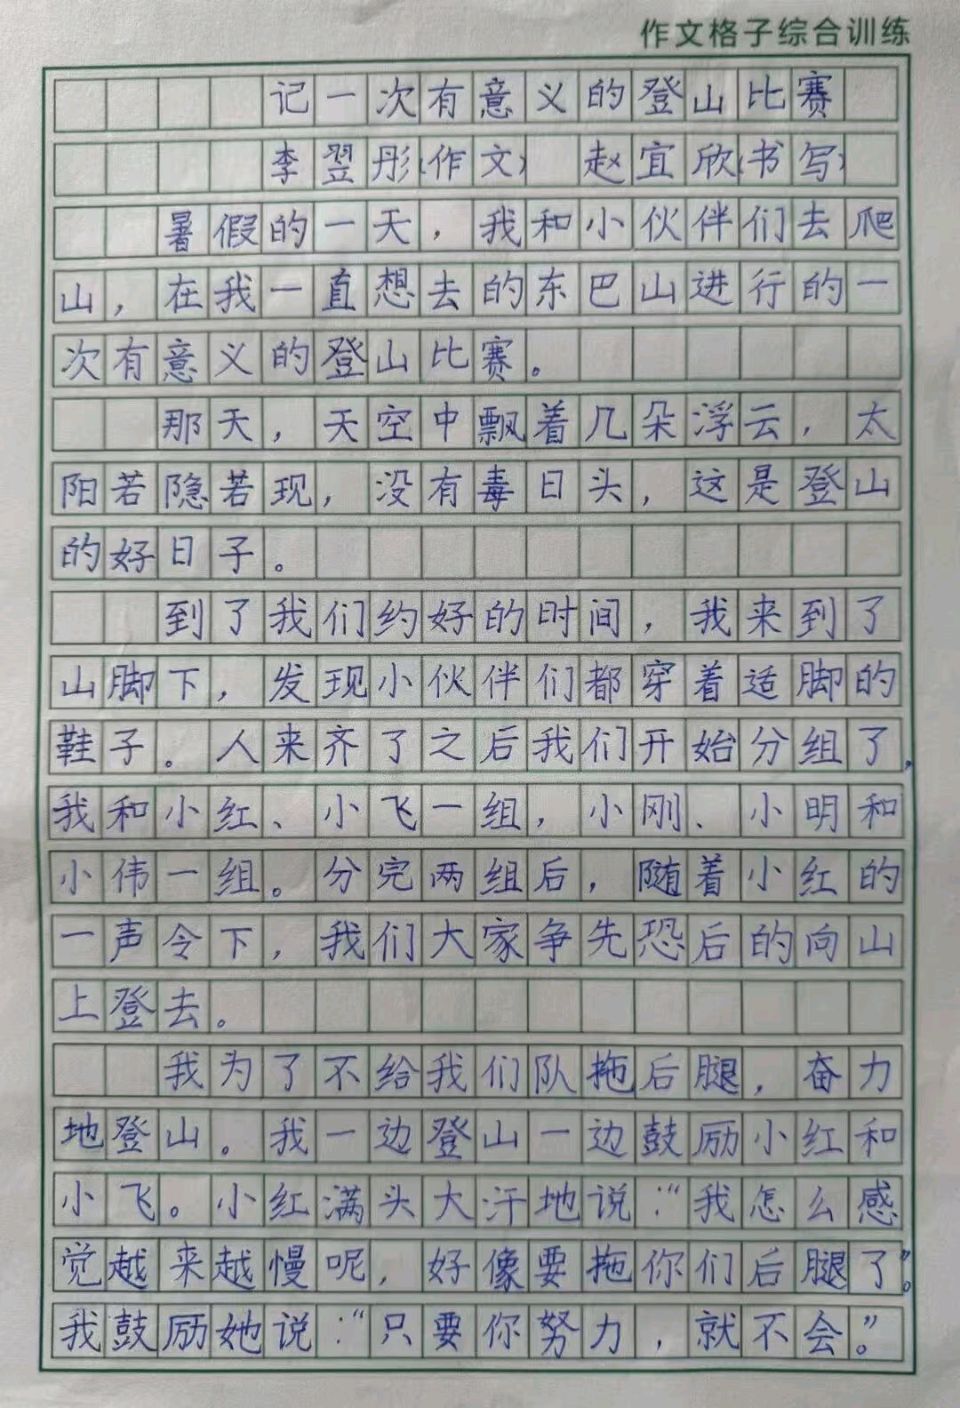 作文格子综合训练
记一次有意义的登山比赛
李翌彤(作文) 赵宜欣(书写)
暑假的一天，我和小伙伴们去爬
山，在我一直想去的东巴山进行的一
次有意义的登山比赛。
那天，天空中飘着几朵浮云，太
阳若隐若现，没有毒日头，这是登山
的好日子。
到了我们约好的时间，我来到了
山脚下，发现小伙伴们都穿着适脚的
鞋子。人来齐了之后我们开始分组了，
我和小红、小飞一组，小刚、小明和
小伟一组。分完两组后，随着小红的
一声令下，我们大家争先恐后的向山
上登去。
我为了不给我们队拖后腿，奋力
地登山。我一边登山一边鼓励小红和
小飞。小红满头大汗地说：“我怎么感
觉越来越慢呢，好像要拖你们后腿了”。
我鼓励她说：“只要你努力，就不会。”